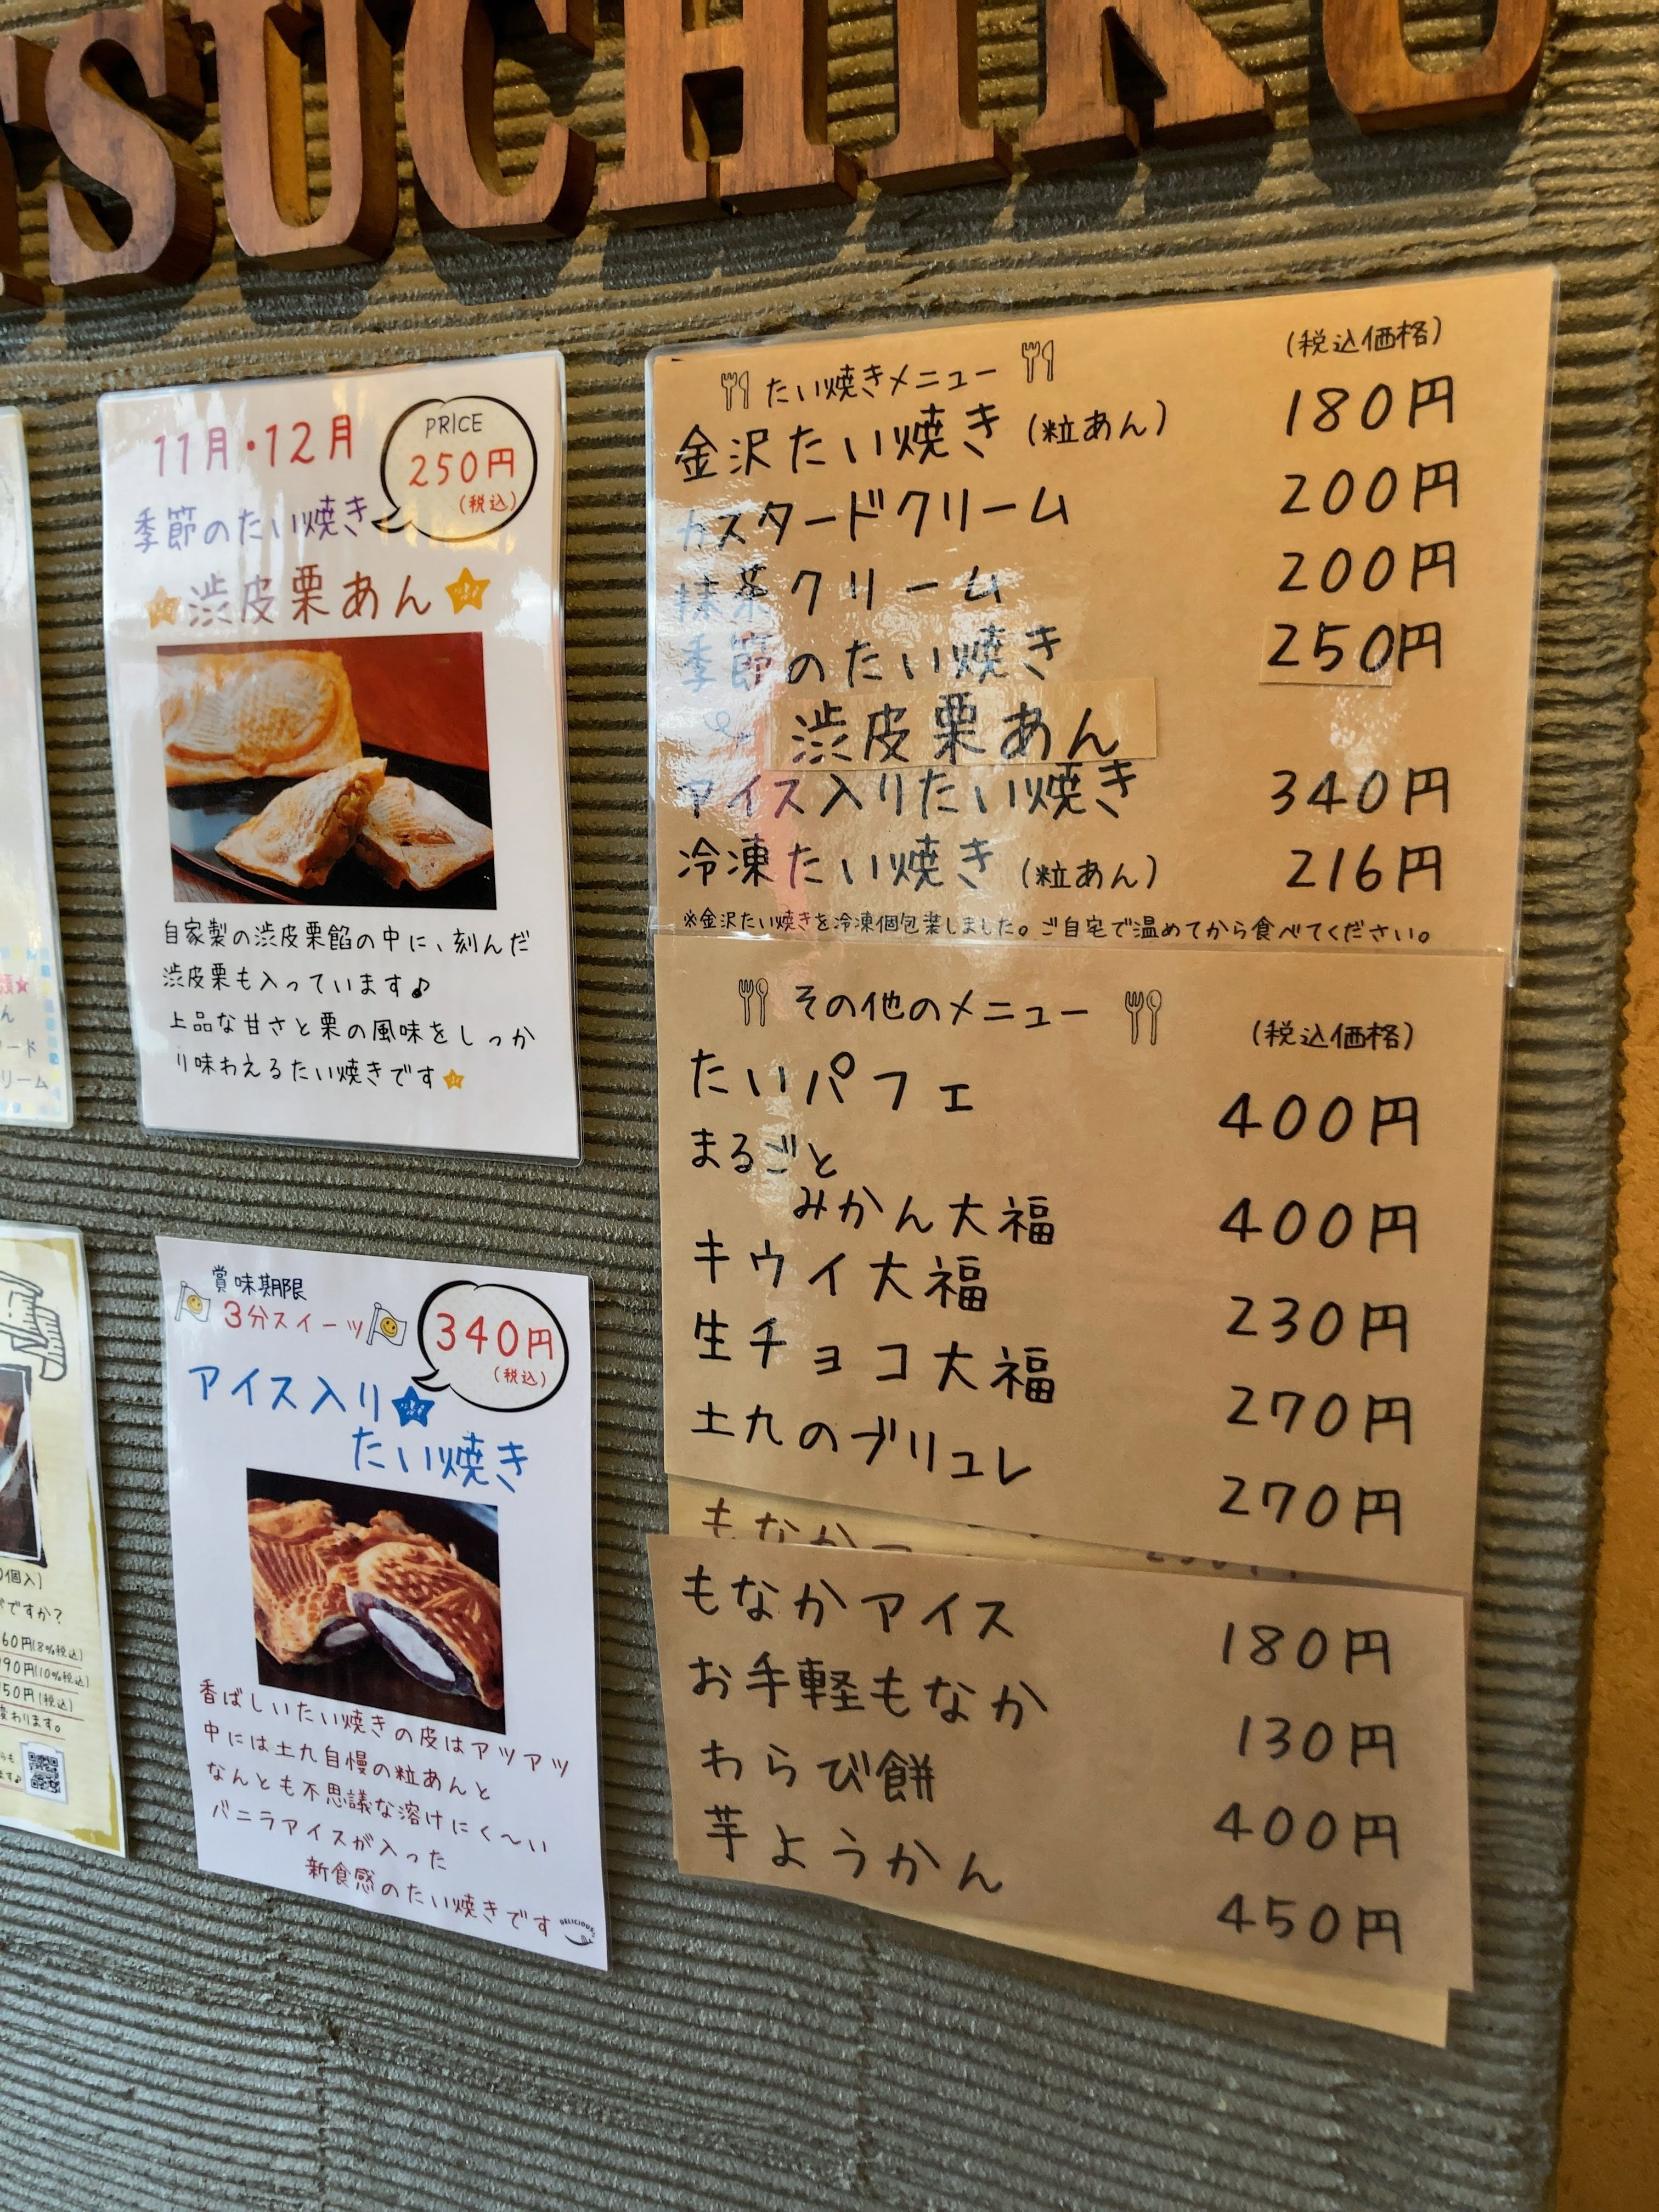 TSUCHIKU
11月・12月
PRICE
250円
(税込)
季節のたい焼き
渋皮栗あん
自家製の渋皮栗餡の中に、刻んだ
渋皮栗も入っています♪
上品な甘さと栗の風味をしっか
り味わえるたい焼きです
賞味期限
3分スイーツ
340円
(税込)
アイス入り
たい焼き
香ばしいたい焼きの皮はアツアツ
中には土九自慢の粒あんと
なんとも不思議な溶けにく〜い
バニラアイスが入った
新食感のたい焼きです
DELICIOUS
たい焼きメニュー
(税込価格)
金沢たい焼き(粒あん) 180円
カスタードクリーム 200円
抹茶クリーム 200円
季節のたい焼き 250円
渋皮栗あん
アイス入りたい焼き 340円
冷凍たい焼き(粒あん) 216円
※金沢たい焼きを冷凍個包装しました。ご自宅で温めてから食べてください。
その他のメニュー
(税込価格)
たいパフェ 400円
まるごと
みかん大福 400円
キウイ大福 230円
生チョコ大福 270円
土九のブリュレ 270円
もなか
もなかアイス 180円
お手軽もなか 130円
わらび餅 400円
芋ようかん 450円
ん
ード
リーム
個入)
ですか?
60円(8%税込)
90円(10%税込)
50円(税込)
変わります。